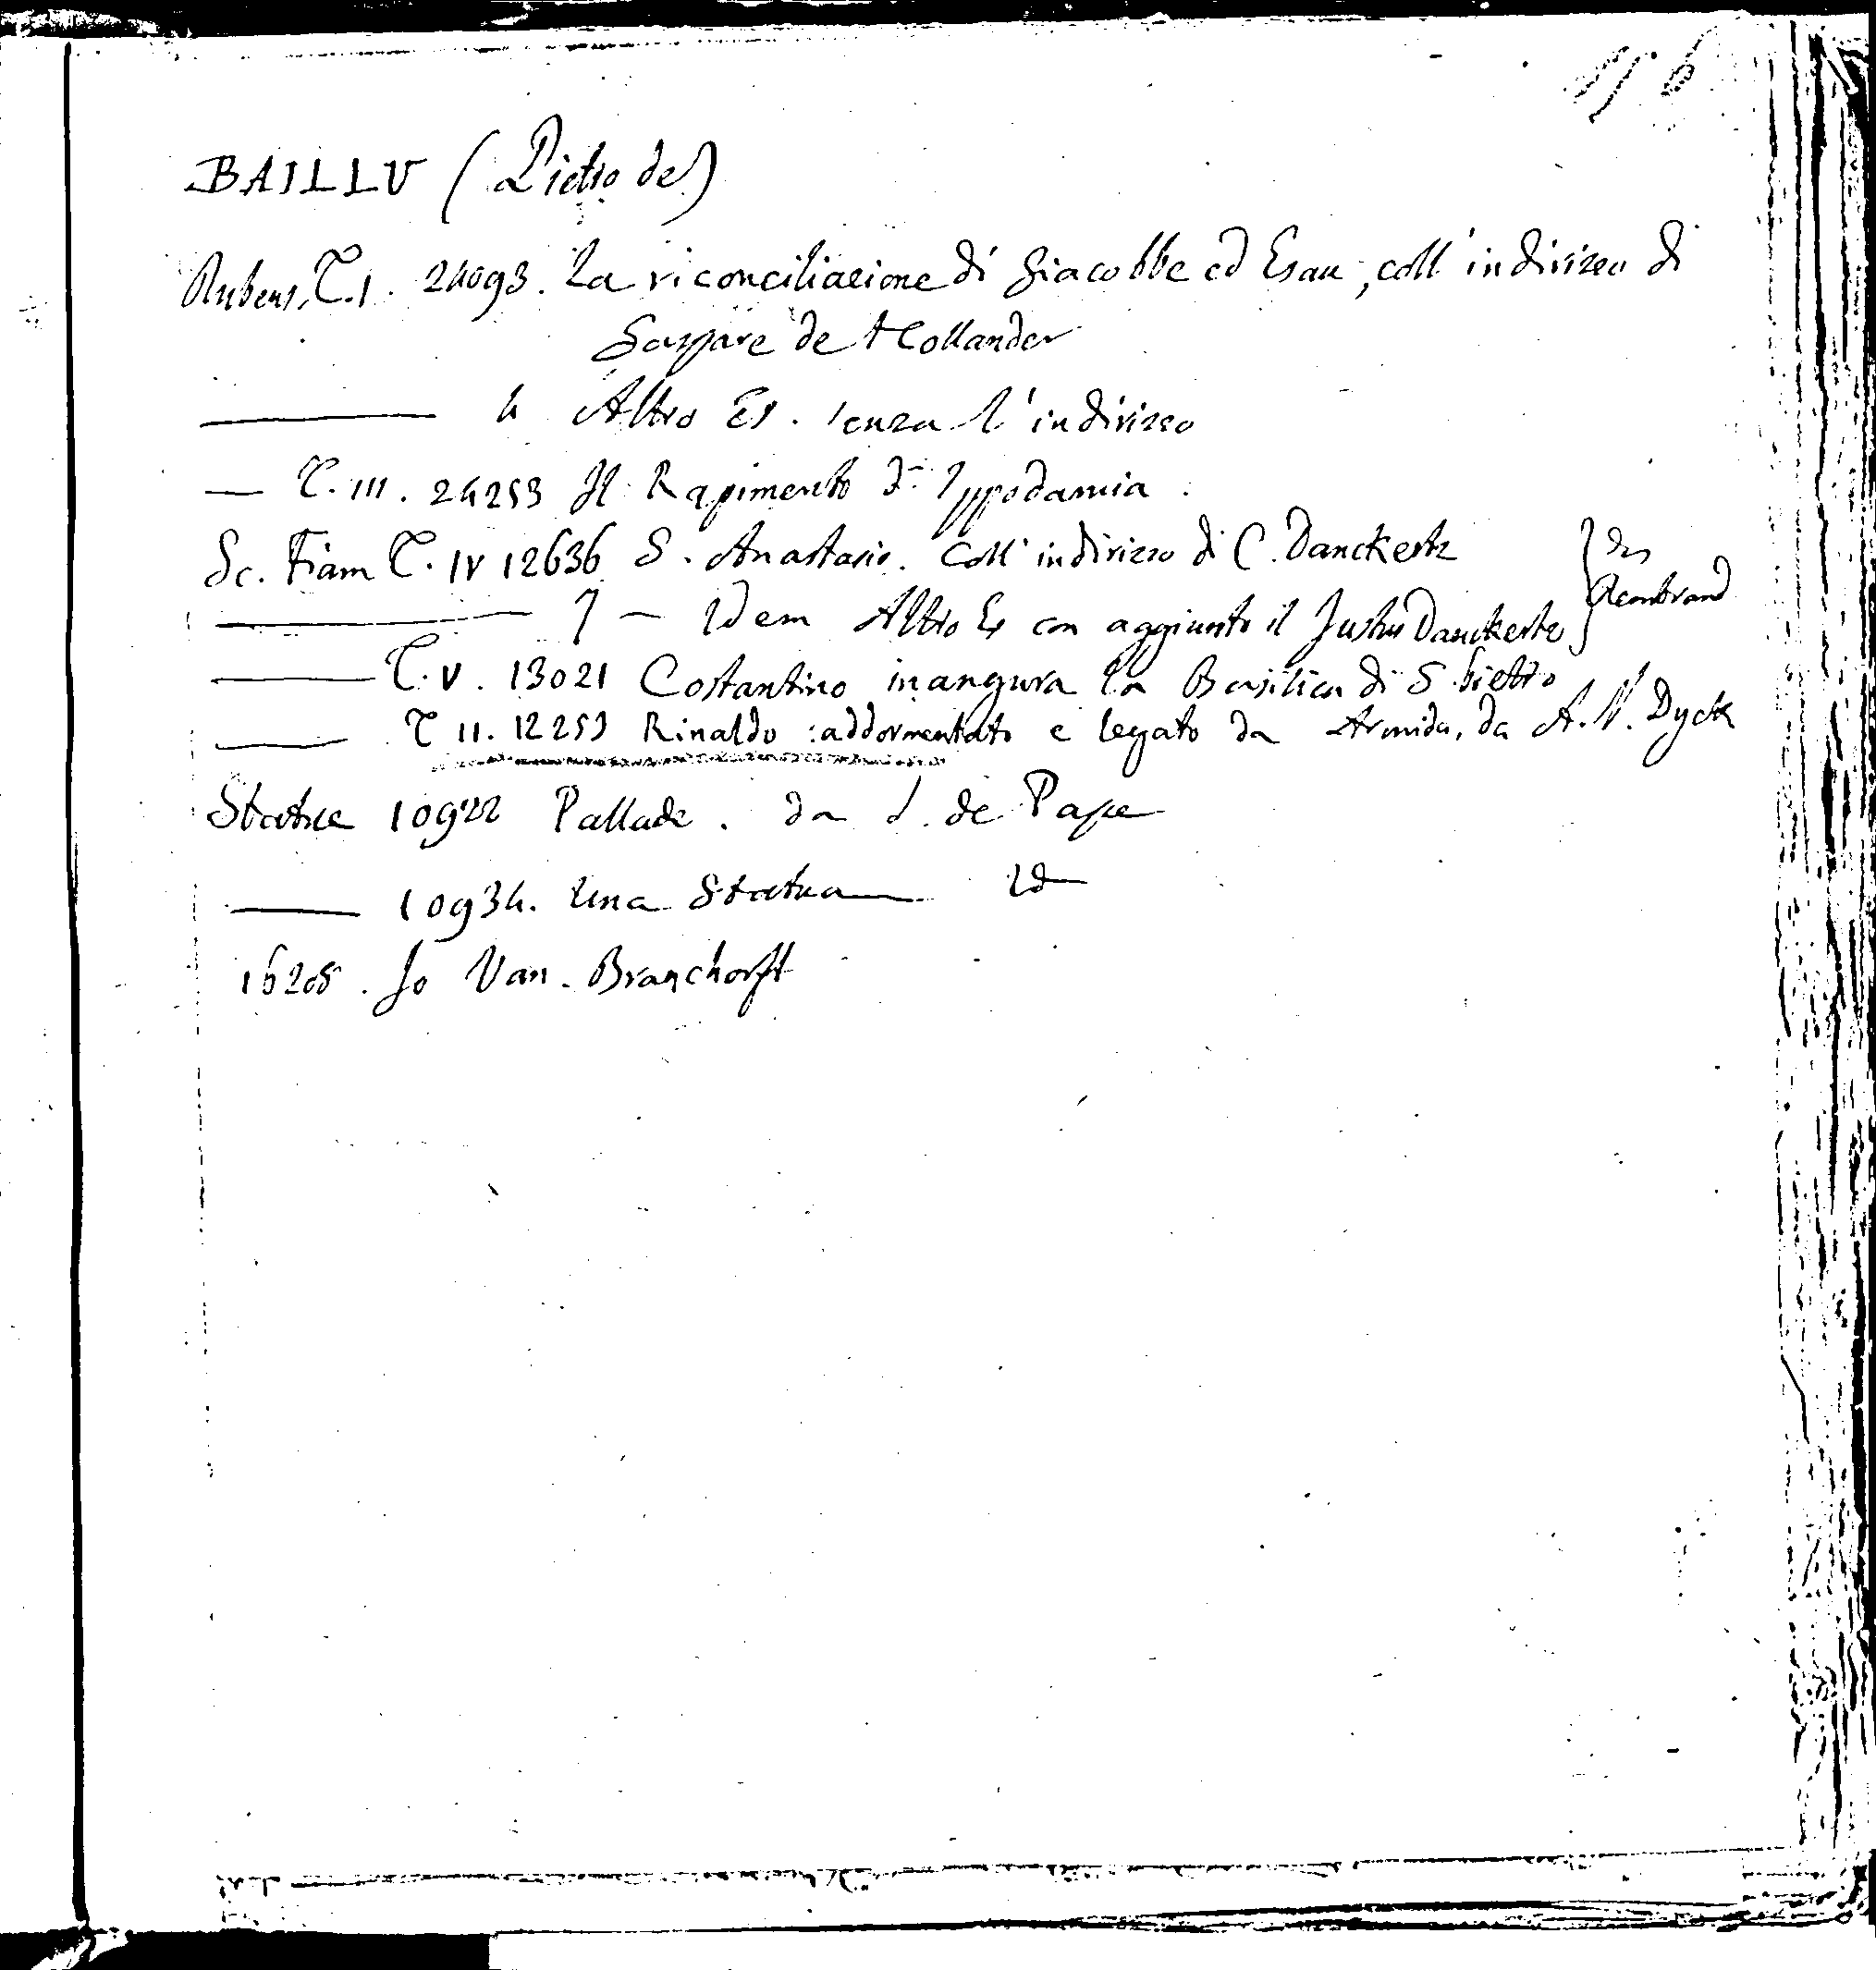 156
BAILLU (Pietro de)
Rubens, T. I. 24093. La riconciliazione di Giacobbe ed Esau, coll'indirizzo di
Gaspare de Hollander
4 Altro Es. senza l'indirizzo
— T. III. 24253 Il Rapimento d'Ippodamia.
Sc. Fiam T. IV 12636 S. Anastasio. Coll'indirizzo di C. Danckertz
7 — Idem Altro Es con aggiunto il Justus Danckerts } da Rembrand
T. V. 13021 Costantino inaugura la Basilica di S. Pietro
T II. 12253 Rinaldo addormentato e legato da Armida, da A. V. Dyck
Statue 10922 Pallade. da J. de Pape
10934. Una Statua Id
16208. Jo Van. Branchorst